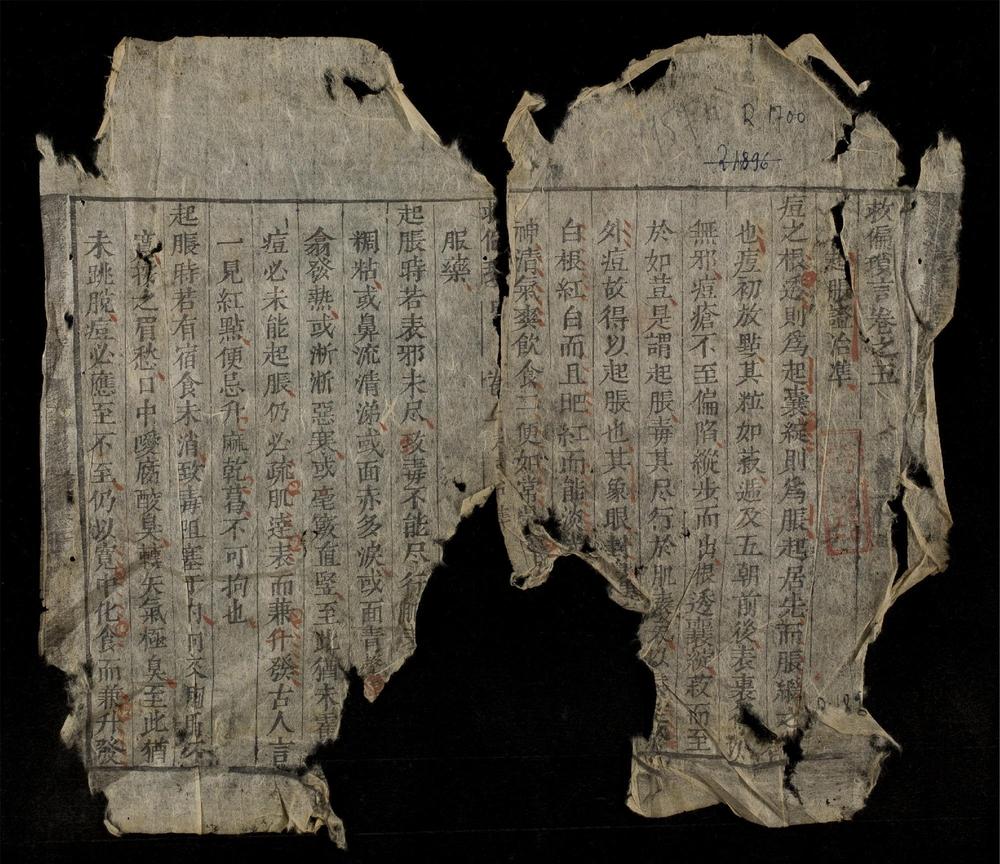 R 1700
21896
救偏瑣言卷之五
起脹證治準
痘之根透則爲起囊綻則爲脹起居先而脹繼之
也痘初放點其粒如蔌邐及五朝前後表裏
無邪痘瘡不至偏陷縱步而出根透囊綻蔌而至
於如荳是謂起脹毒其尽行於肌表
外痘故得以起脹也其象眼
白根紅白而且肥紅而能淡
神清氣爽飲食二便如常
服藥
起脹時若表邪未尽致毒不能尽行
稠粘或鼻流清涕或面亦多淚或面青
翕發熱或淅淅惡寒或毫竅直竪至此猶未
痘必未能起脹仍必疏肌達表而兼升發古人言
一見紅點便忌升麻乾葛不可拘也
起脹時若有宿食未消致毒阻塞于內
之眉愁口中噯腐酸臭轉矢氣極臭至此猶
未跳脫痘必應至不至仍以寬中化食而兼升發